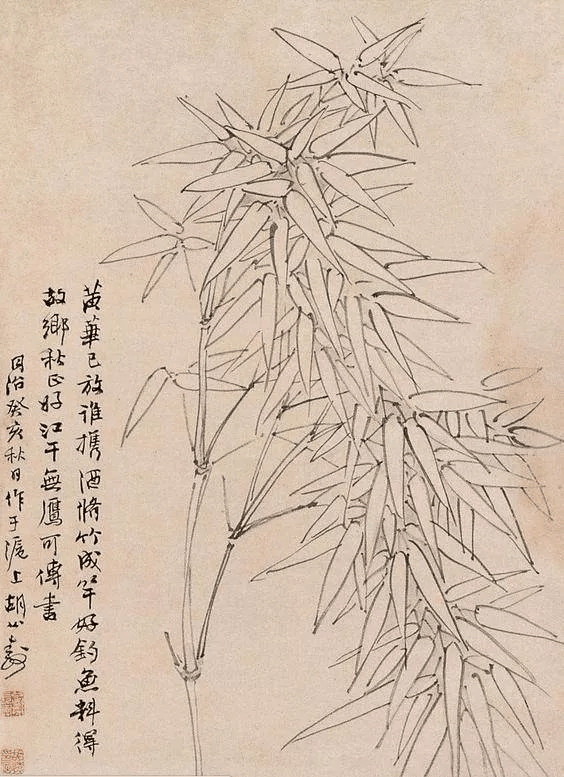 黄華已放誰携酒脩竹成竿好釣魚料得
故鄉秋正好江干無鴈可傳書
同治癸亥秋日作于滬上胡公壽